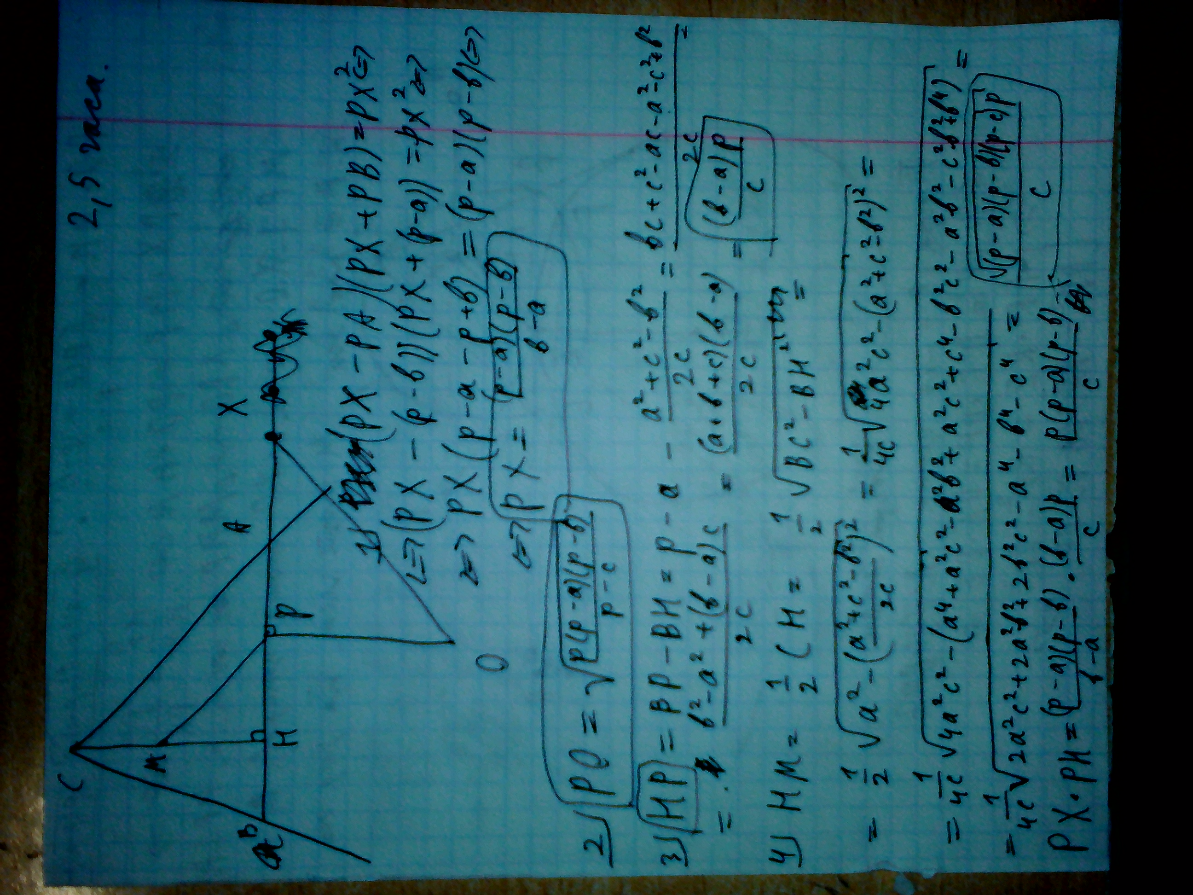 2,5 часа.
C
M
B
H
P
A
X
O
1) (PX − PA)(PX + PB) = PX² <=>
<=> (PX − (p−b))(PX + (p−a)) = PX² <=>
<=> PX(p−a−p+b) = (p−a)(p−b) <=>
<=> PX = (p−a)(p−b) / b−a
2) PO = √(p(p−a)(p−b) / p−c)
3) HP = BP − BH = p − a − a²+c²−b² / 2c = bc+c²−ac−a²−c²+b² / 2c =
= b²−a²+(b−a)c / 2c = (a+b+c)(b−a) / 2c = (b−a)p / c
4) HM = 1/2 CH = 1/2 √(BC² − BH²) =
= 1/2 √(a² − (a²+c²−b² / 2c)²) = 1/4c √(4a²c² − (a²+c²−b²)²) =
= 1/4c √(4a²c² − (a⁴+a²c²−a²b²+a²c²+c⁴−b²c²−a²b²−c²b²+b⁴)) =
= 1/4c √(2a²c²+2a²b²+2b²c²−a⁴−b⁴−c⁴) = √((p−a)(p−b)(p−c)p) / c
PX · PH = (p−a)(p−b) / b−a · (b−a)p / c = p(p−a)(p−b) / c